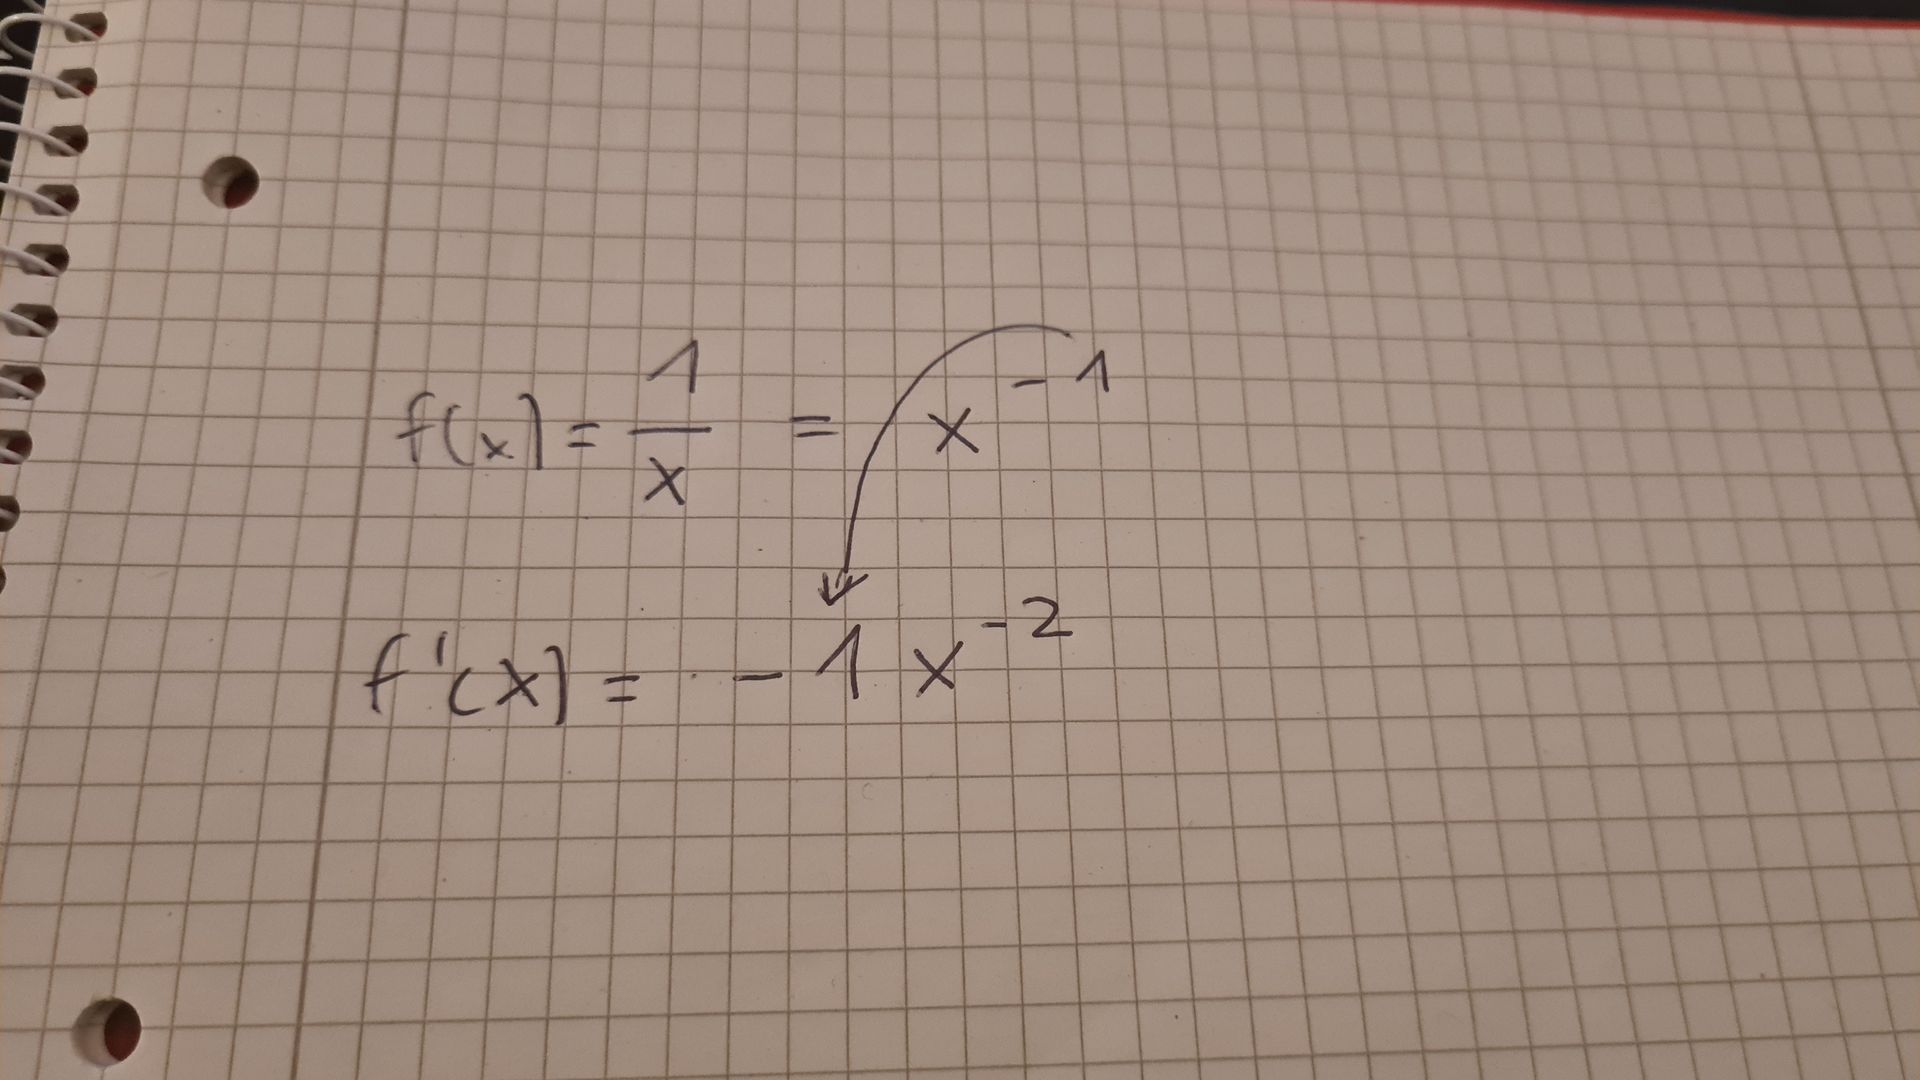 f(x) = 1/x = x^-1
f'(x) = -1x^-2